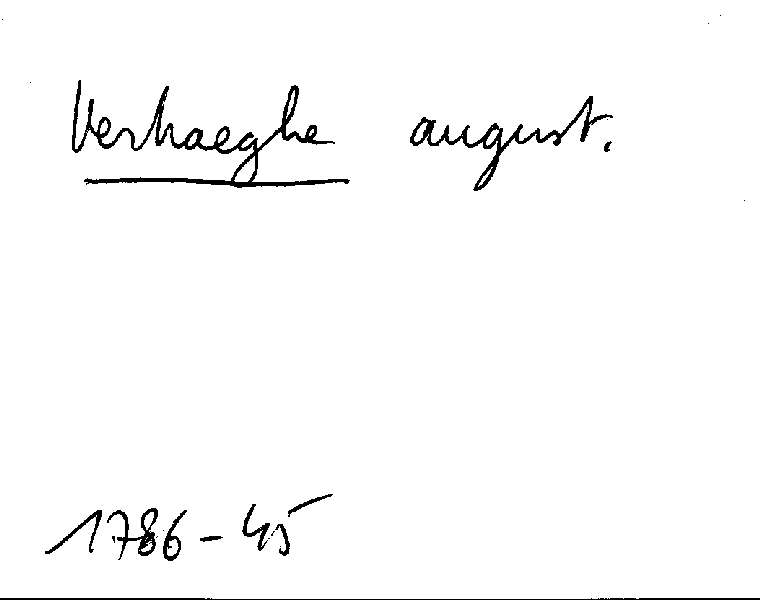 Verhaeghe august.
1786-45